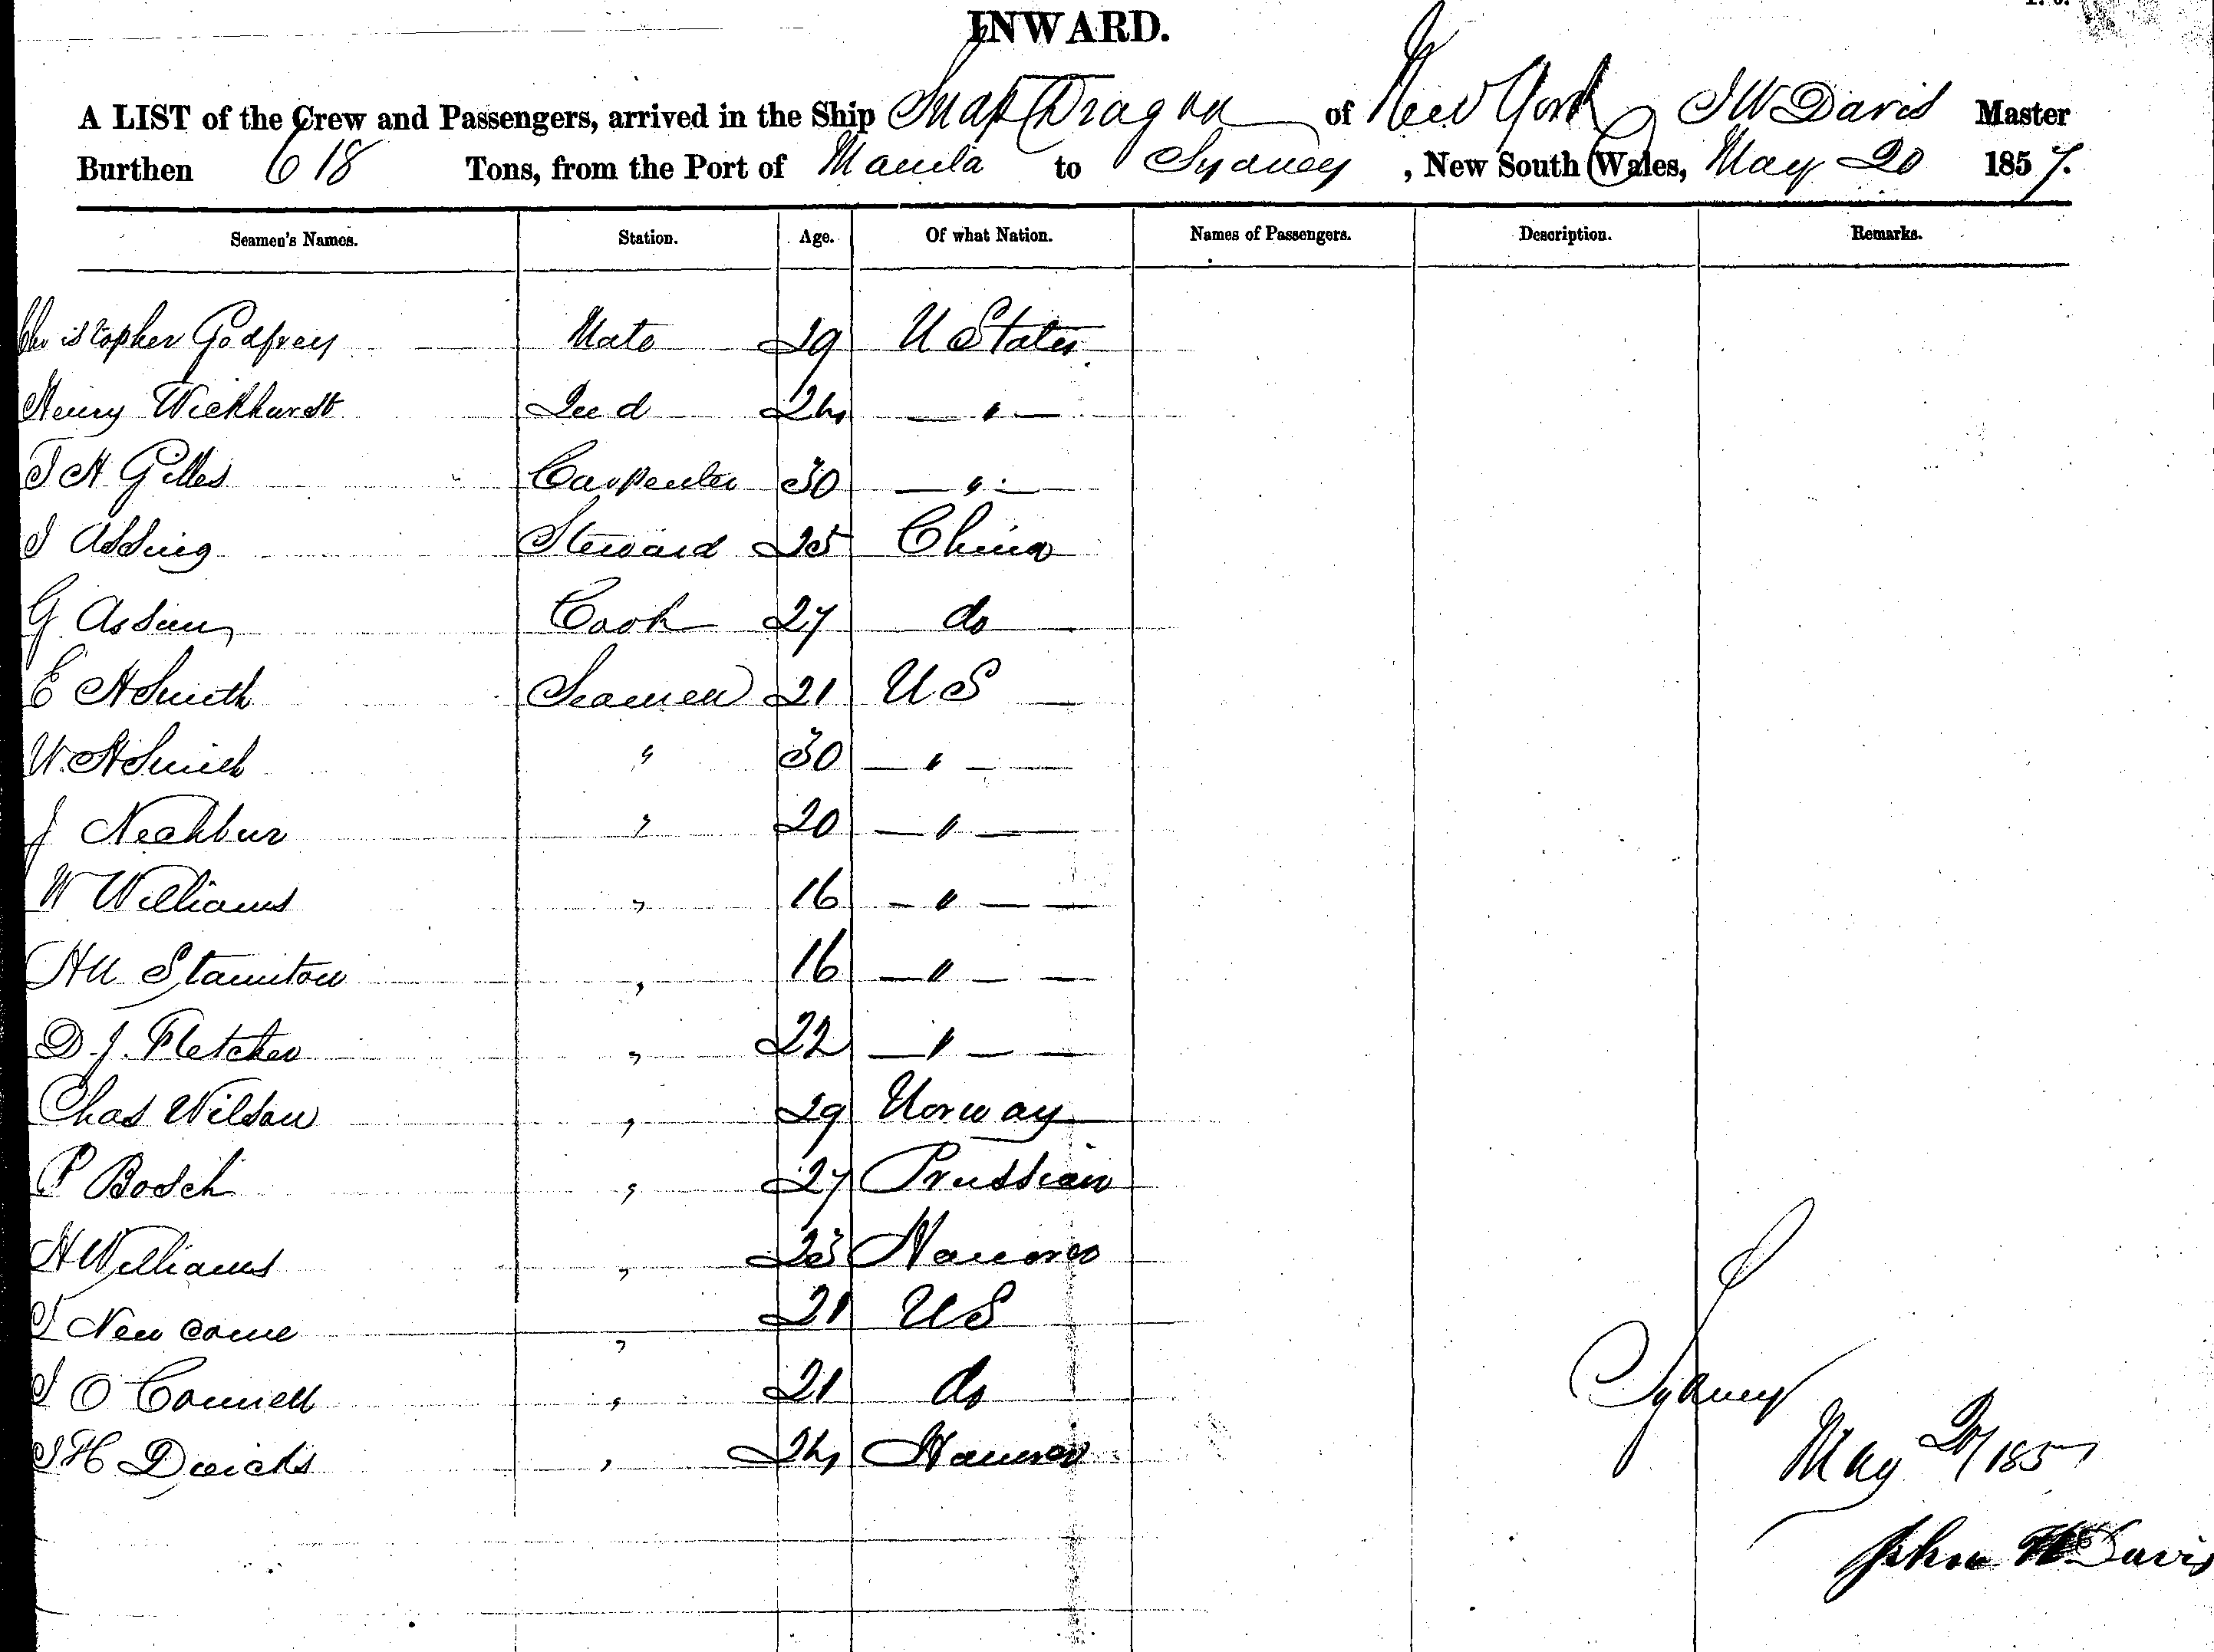 INWARD.
A LIST of the Crew and Passengers, arrived in the Ship Snap Dragon of New York J W Davis Master
Burthen 618 Tons, from the Port of Manila to Sydney, New South Wales, May 20 1857.
Seamen's Names. Station. Age. Of what Nation. Names of Passengers. Description. Remarks.
Christopher Godfrey Mate 29 U States
Henry Wickhurdt 24 — " —
J H Gilles Carpenter 30 — " —
J Assing Steward 25 China
G Cook 27 do
E H Smith Seamen 21 U S
W. H Smith " 30 — " —
J " 20 — " —
W Williams " 16 — " —
Staunton " 16 — " —
D. J. Fletcher " 22 — " —
Chas Wilson " 29 Norway
P Bosch " 27 Prussian
H Williams " 23 Hanover
J Newcome " 21 U S
J O Connell " 21 do
J H " 24 Hanover
Sydney
May 20/1857
John W Davis